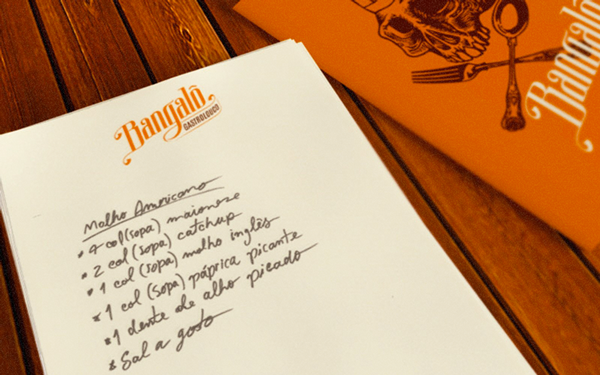 Bangalô
GASTROLOUCO
Molho Americano
* 4 col (sopa) maionese
* 2 col (sopa) catchup
* 1 col (sopa) molho inglês
* 1 col (sopa) páprica picante
* 1 dente de alho picado
* Sal a gosto
Bangalô